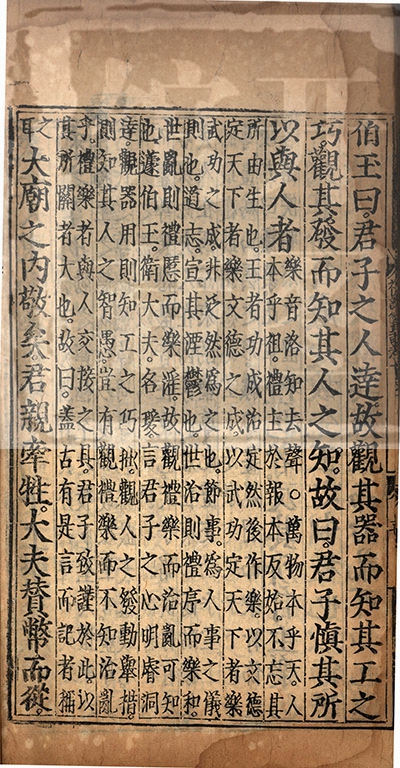 伯王曰。君子之人達故觀其器而知其工之
巧。觀其發而知其人之知。故曰。君子慎其所
以與人者
樂音洛知去聲。○萬物本乎天。人
本乎祖。禮主於報本反始。不忘其
所由生也。王者功成治定然後作樂。以文德
定天下者樂文德之成。以武功定天下者樂
武功之成。非泛然為之也。節事。為人事之儀
則也。道志。宣其湮鬱也。世治則禮序而樂和。
世亂則禮慝而樂淫。故觀禮樂而治亂可知
也。蘧伯王。衛大夫。名瑗。言君子之心明睿洞
達。觀器用則知工之巧拙。觀人之發動舉措。
則知其人之智愚。豈有觀禮樂而不知治亂
乎。禮樂者與人交接之具。君子致謹於此。以
其所關者大也。故曰。蓋古有是言而記者稱
之耳
大廟之內敬矣。君親牽牲。大夫贊幣而從。